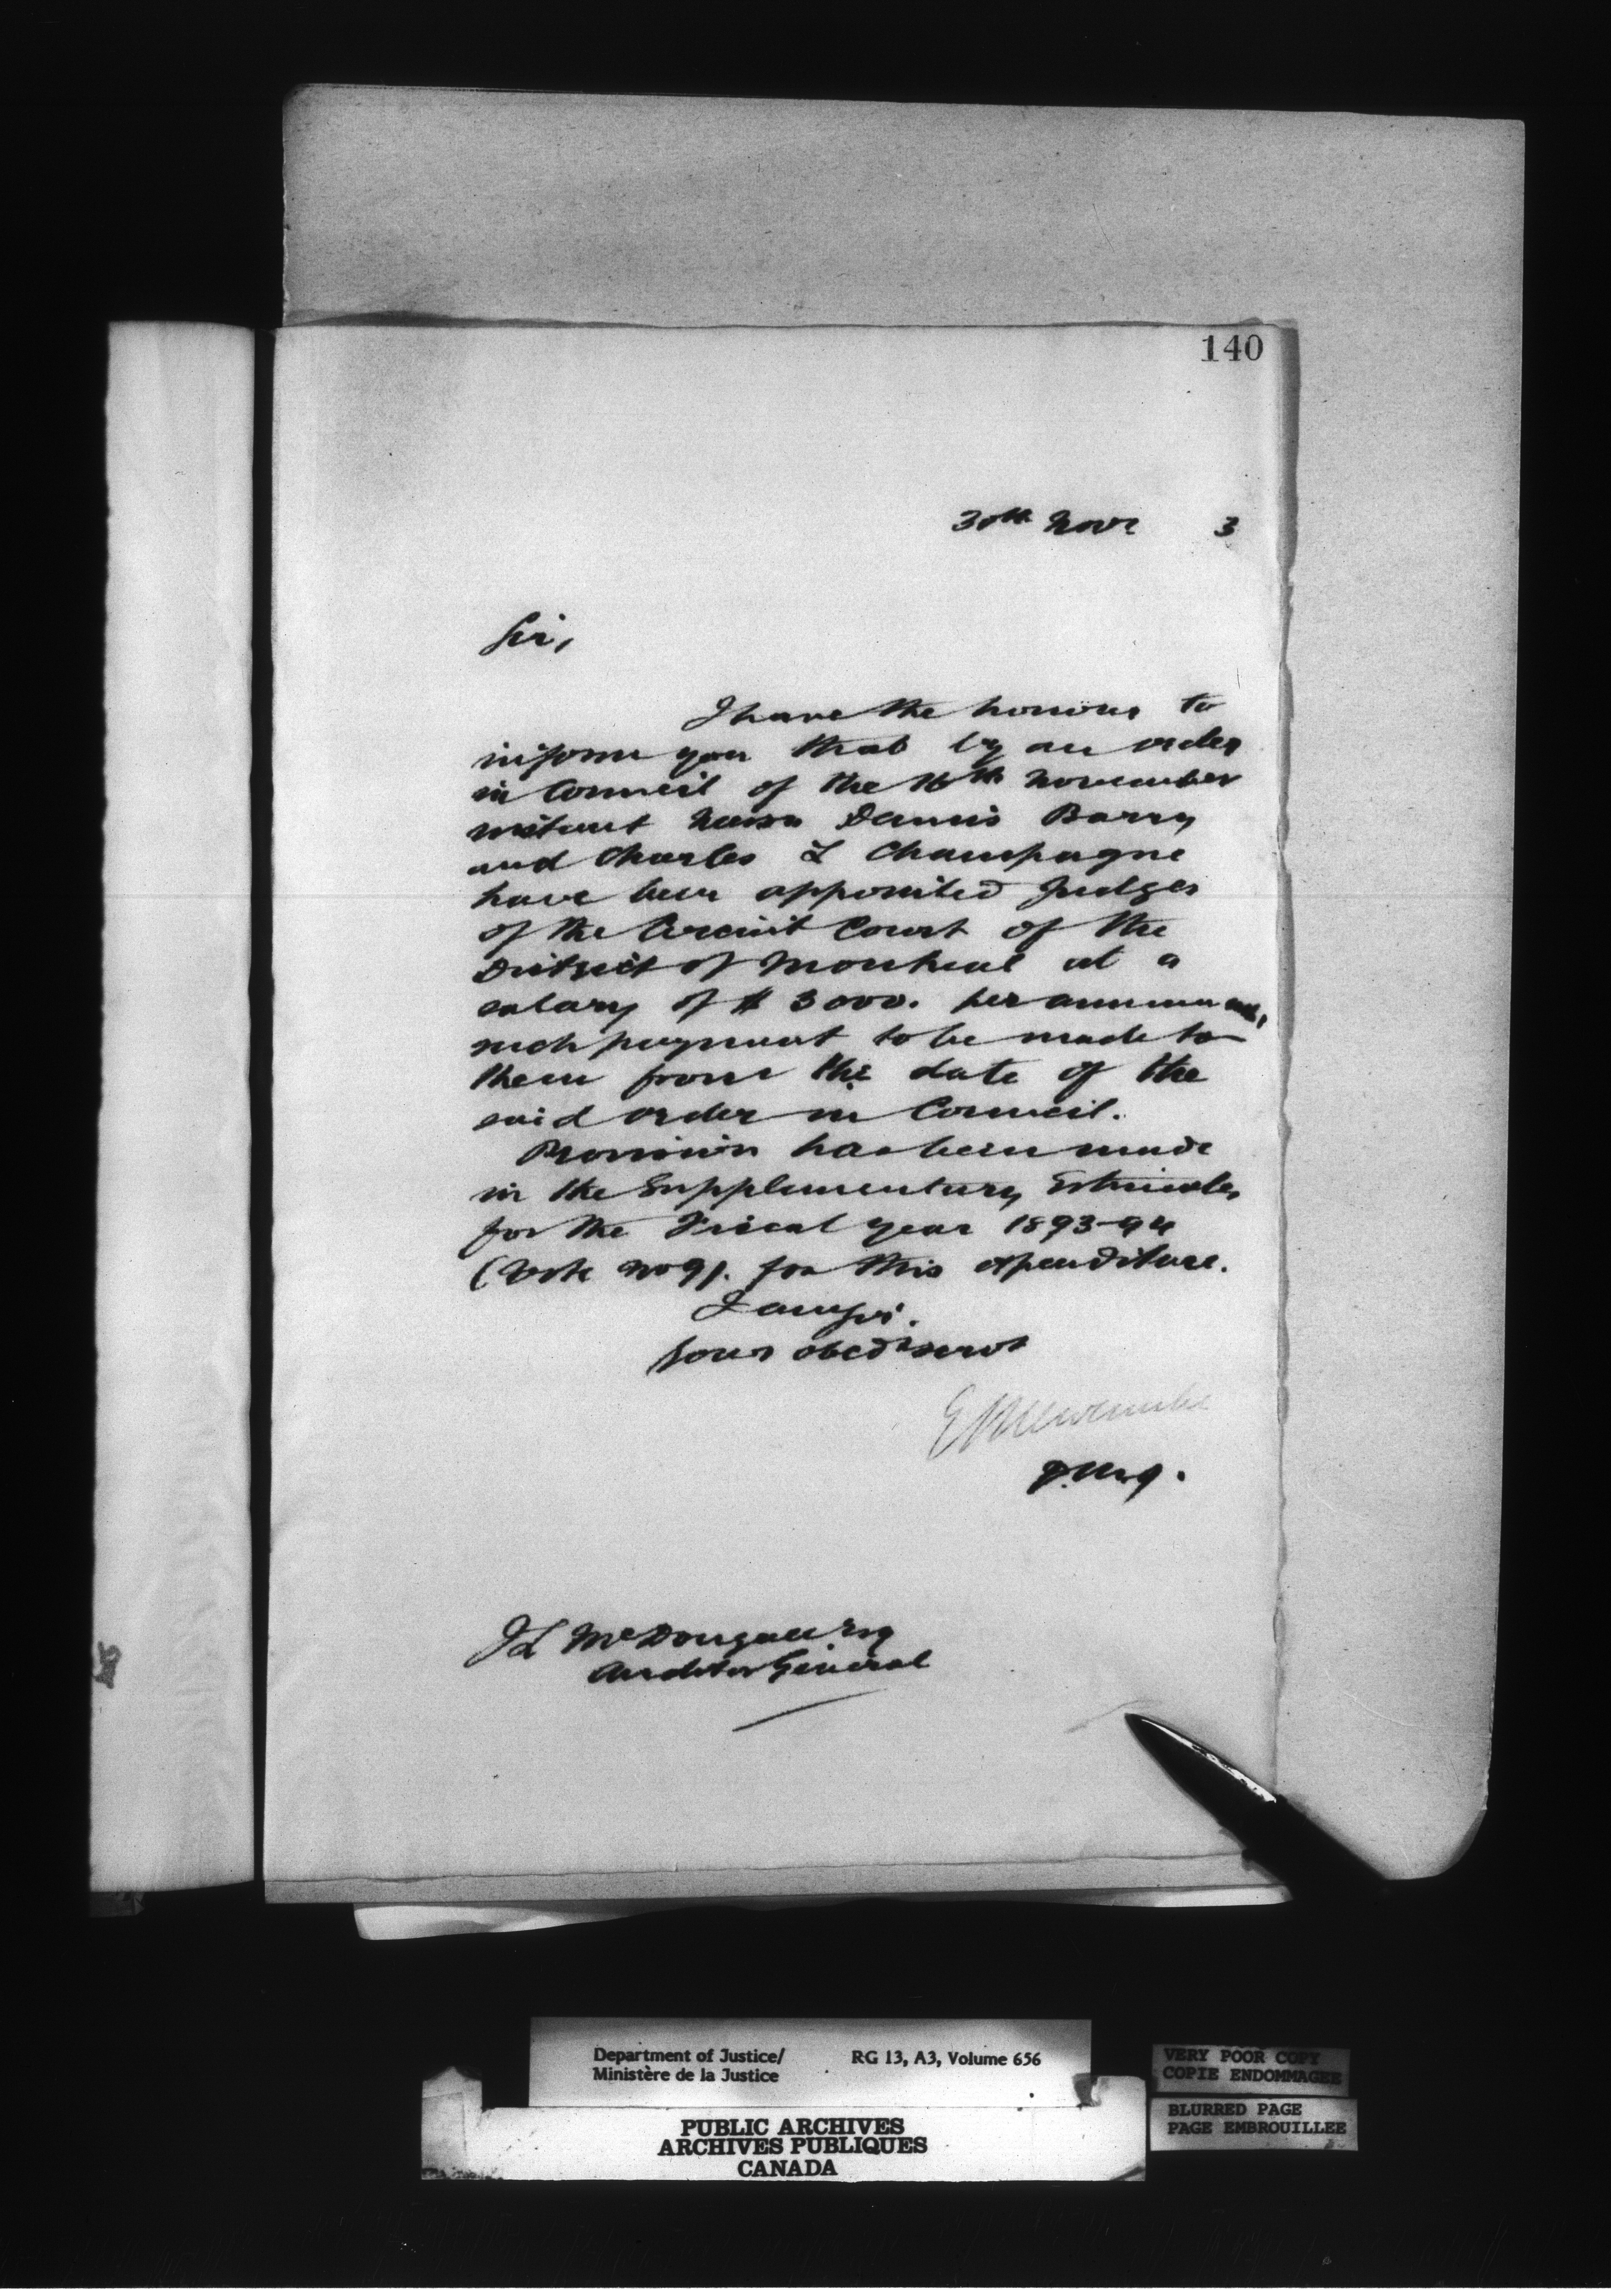 140
30th Novr 3
Sir,
I have the honour to
inform you that by an order
in Council of the 16th November
instant Dennis Barry
and Charles L Champagne
have been appointed Judges
of the Circuit Court of the
District of Montreal at a
salary of $3000. per annum each,
such payment to be made to
them from the date of the
said order in Council.
Provision has been made
in the Supplementary Estimates
for the Fiscal year 1893-94
(Vote No 9). for this expenditure.
I am Sir.
Your obedt servt
E L Newcombe
D.M.J.
J L McDougall Esq
Auditor General
Department of Justice/
Ministère de la Justice
RG 13, A3, Volume 656
PUBLIC ARCHIVES
ARCHIVES PUBLIQUES
CANADA
VERY POOR COPY
COPIE ENDOMMAGEE
BLURRED PAGE
PAGE EMBROUILLEE